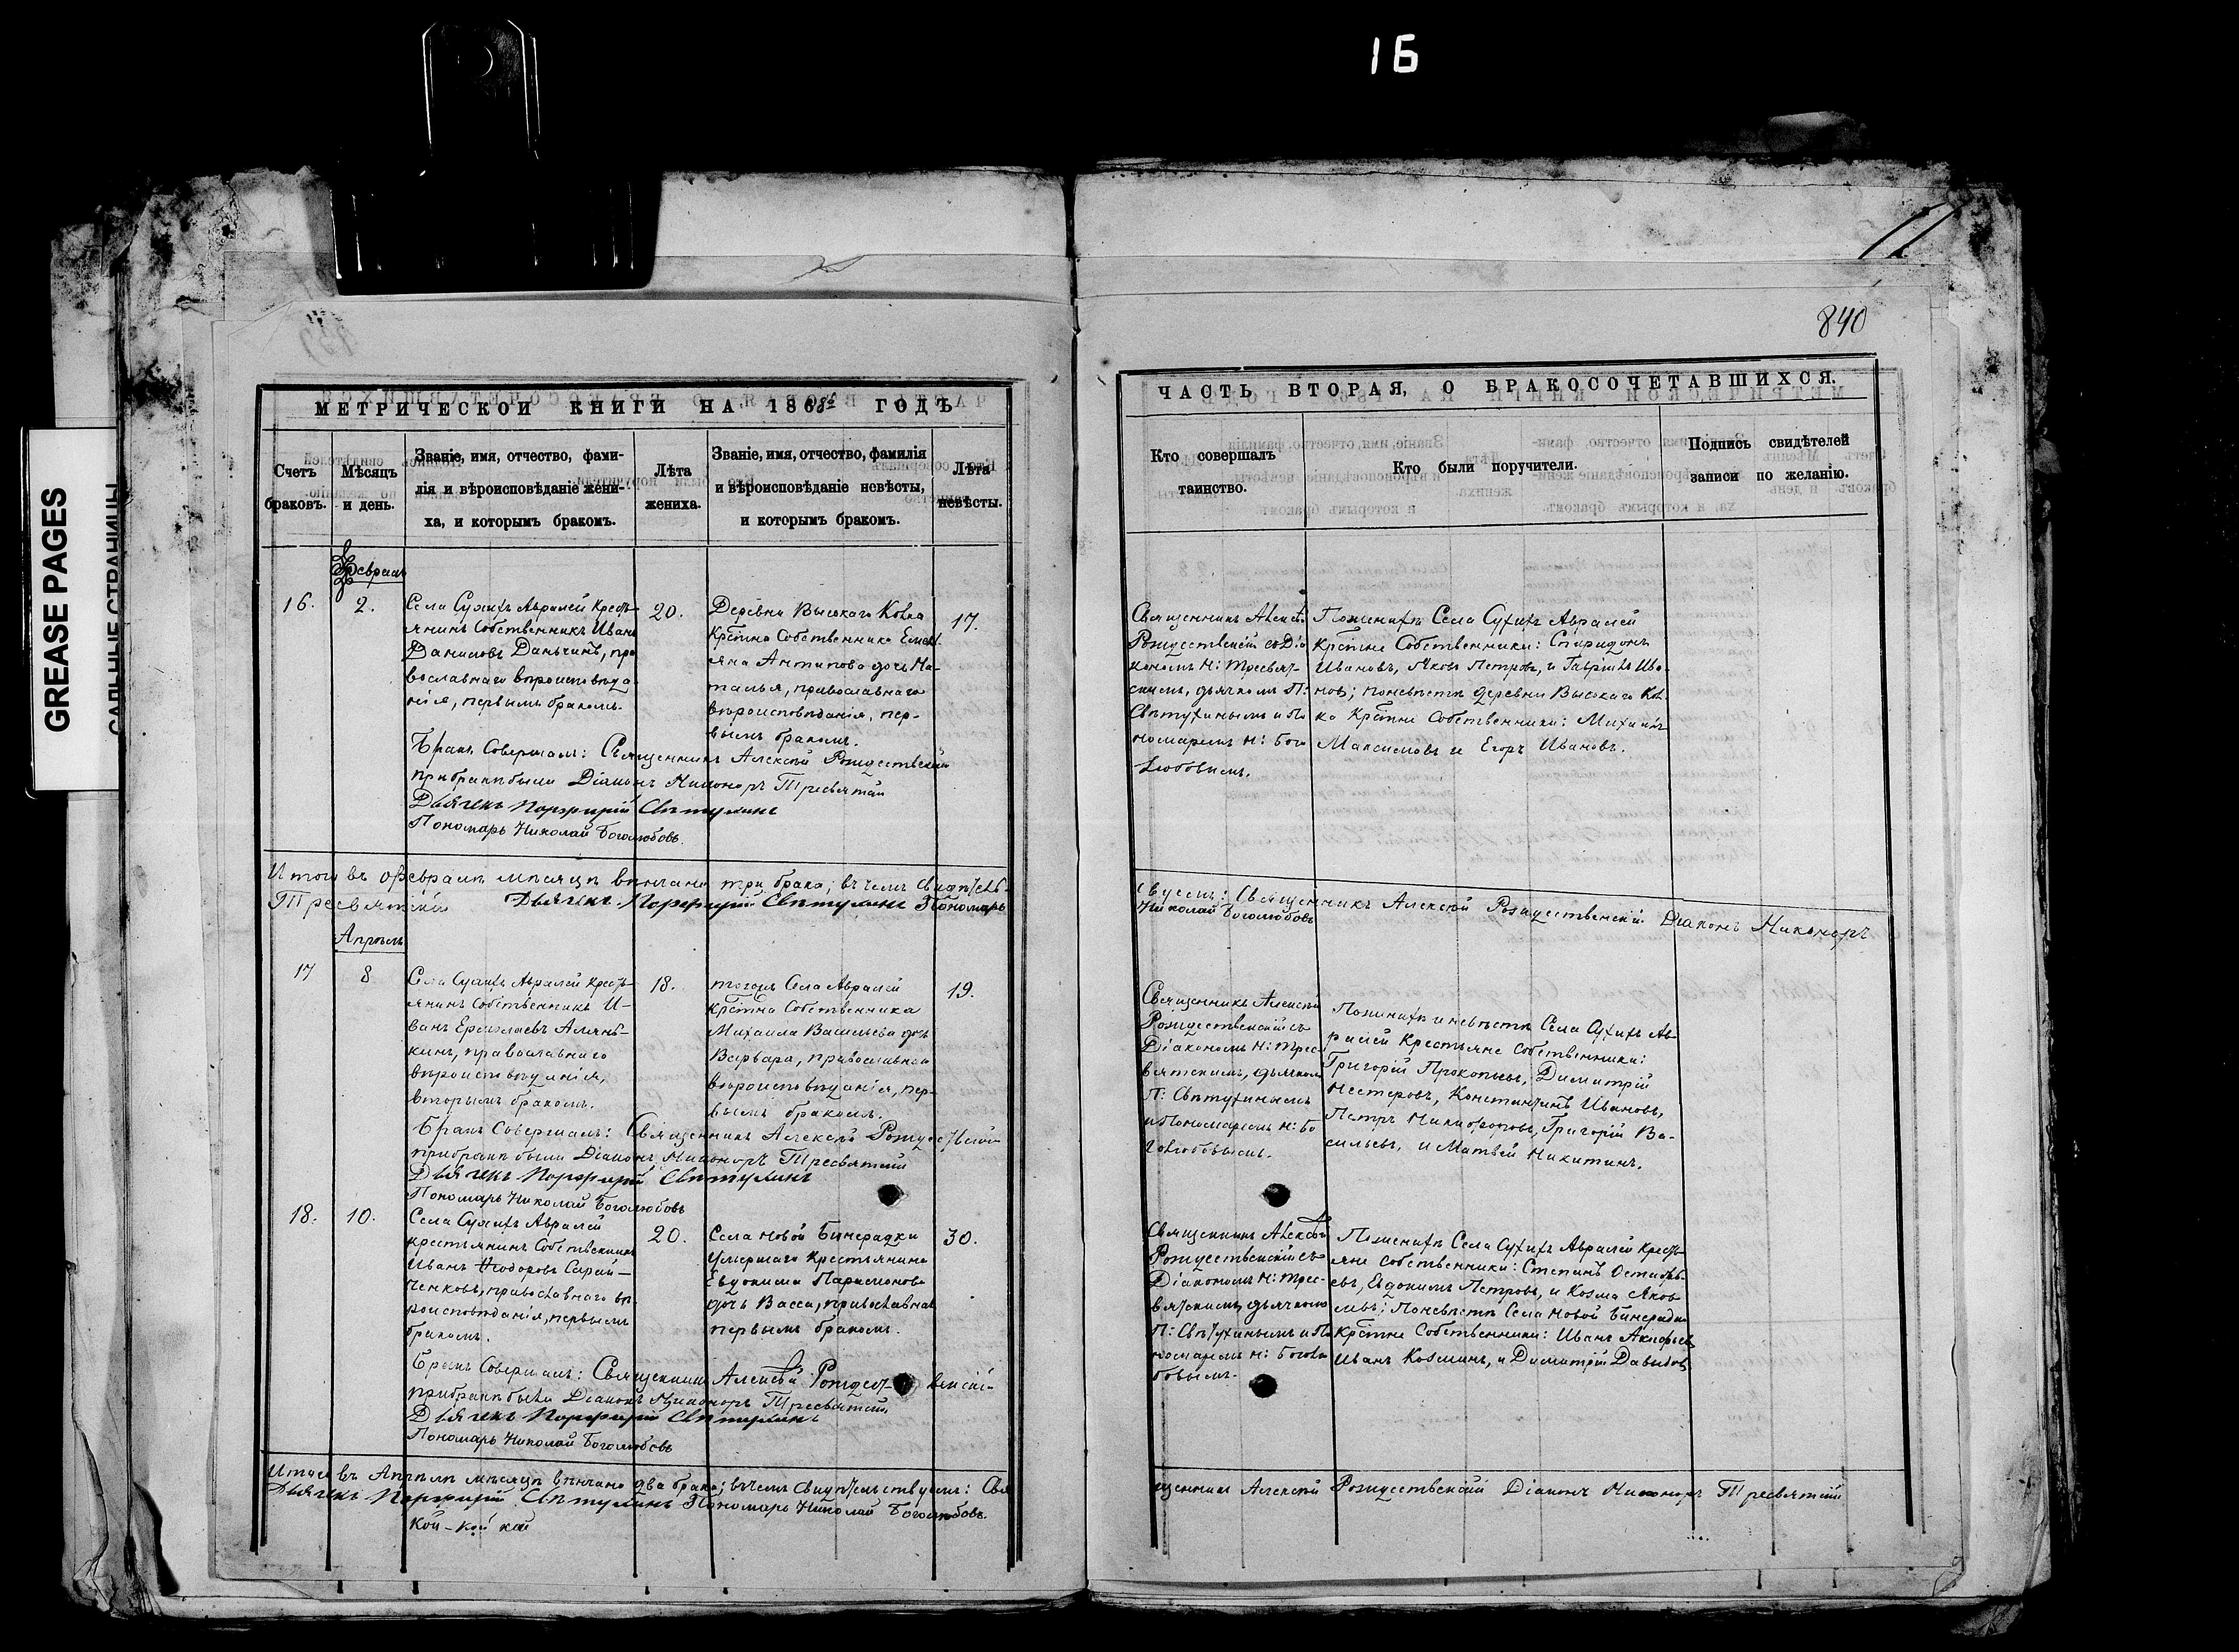 16
GREASE PAGES
САЛЬНЫЕ СТРАНИЦЫ
МЕТРИЧЕСКОЙ КНИГИ НА 1868й ГОДЪ
Счетъ
браковъ.
Мѣсяцъ
и день.
Званіе, имя, отчество, фами-
лія и вѣроисповѣданіе жени-
ха, и которымъ бракомъ.
Лѣта
жениха.
Званіе, имя, отчество, фамилія
и вѣроисповѣданіе невѣсты,
и которымъ бракомъ.
Лѣта
невѣсты.
Февраль
16.
2.
Села Сухихъ Авралей кресть-
янинъ Собственникъ Иванъ
Даниловъ Данькинъ, пра
вославнаго вѣроисповѣда
нія, первымъ бракомъ.
20.
Деревни Высокаго Колка
Крѣтина Собственника Емел
яна Антипова дочь На-
талья, православнаго
вѣроисповѣданія, пер-
вымъ бракомъ.
17.
Бракъ Совершалъ: Священникъ Алексѣй Рождественскій
при бракѣ были Діаконъ Никаноръ Тресвятскій
Дьячекъ Порфирій Свѣтухинъ
Пономарь Николай Боголюбовъ.
Итого въ Февралѣ мѣсяцѣ вѣнчано три брака; въ чемъ свидѣтель-
Тресвятскій Дьячекъ Порфирій Свѣтухинъ Пономарь
Апрѣль
17
8
Села Сухихъ Авралей кресть-
янинъ Собственникъ И-
ванъ Ермолаевъ
кинъ, православнаго
вѣроисповѣданія,
вторымъ бракомъ.
18.
тогожъ Села Авралей
крѣтина Собственника
Михаила Васильева дочь
Варвара, православнаго
вѣроисповѣданія, пер-
вымъ бракомъ.
19.
Бракъ Совершалъ: Священникъ Алексѣй Рождественскій
при бракѣ были Діаконъ Никаноръ Тресвятскій
Дьячекъ Порфирій Свѣтухинъ
Пономарь Николай Боголюбовъ
18.
10.
Села Сухихъ Авралей
крестьянинъ Собственникъ
Иванъ Ѳеодоровъ
православнаго вѣ
роисповѣданія, первымъ
бракомъ.
20.
Села Новой Бинарадки
Умершаго Крестьянина
Евдокима Парамонова
дочь Васса, православная
первымъ бракомъ.
30.
Бракъ Совершалъ: Священникъ Алексѣй Рождественскій
при бракѣ были Діаконъ Никаноръ Тресвятскій
Дьячекъ Порфирій Свѣтухинъ
Пономарь Николай Боголюбовъ
Итого въ Апрѣлѣ мѣсяцѣ вѣнчано два брака; въ чемъ Свидѣтельствуемъ: Свя
Дьячекъ Порфирій Свѣтухинъ Пономарь Николай Боголюбовъ.
840
ЧАСТЬ ВТОРАЯ, О БРАКОСОЧЕТАВШИХСЯ.
Кто совершалъ
таинство.
Кто были поручители.
Подпись свидѣтелей
записи по желанію.
Священникъ Алексѣй
Рождественскій съ Діа
кономъ Н: Тресвят-
скимъ, дьячкомъ П:
Свѣтухинымъ и По
номаремъ Н: Бого
любовымъ.
По женихѣ Села Сухихъ Авралей
Крѣтне Собственники: Спиридонъ
Ивановъ, Яковъ Петровъ, и Гавріилъ Ива-
новъ; по невѣстѣ деревни Высокаго Кол-
ка Крѣтне Собственники: Михаилъ
Максимовъ и Егоръ Ивановъ.
свуемъ: Священникъ Алексѣй Рождественскій Діаконъ Никаноръ
Николай Боголюбовъ
Священникъ Алексѣй
Рождественскій съ
Діакономъ Н: Трес-
вятскимъ, дьячкомъ
П: Свѣтухинымъ
и Пономаремъ Н: Бо
голюбовымъ.
По женихѣ и невѣстѣ Села Сухихъ Ав-
ралей Крестьяне Собственники:
Григорій Прокопьевъ, Димитрій
Нестеровъ, Константинъ Ивановъ,
Петръ Никифоровъ, Григорій Ва-
сильевъ, и Матвѣй Никитинъ.
Священникъ Алексѣй
Рождественскій съ
Діакономъ Н: Трес-
вятскимъ, дьячкомъ
П: Свѣтухинымъ и По
номаремъ Н: Боголю
бовымъ.
По женихѣ Села Сухихъ Авралей кресть-
яне Собственники: Степанъ Остафь-
евъ, Евдокимъ Петровъ, и Козма Яков
левъ; По невѣстѣ Села Новой Бинарадки
Крѣтне Собственники: Иванъ Акифьевъ,
Иванъ Козминъ, и Димитрій Давыдовъ
щенникъ Алексѣй Рождественскій Діаконъ Никаноръ Тресвятскій